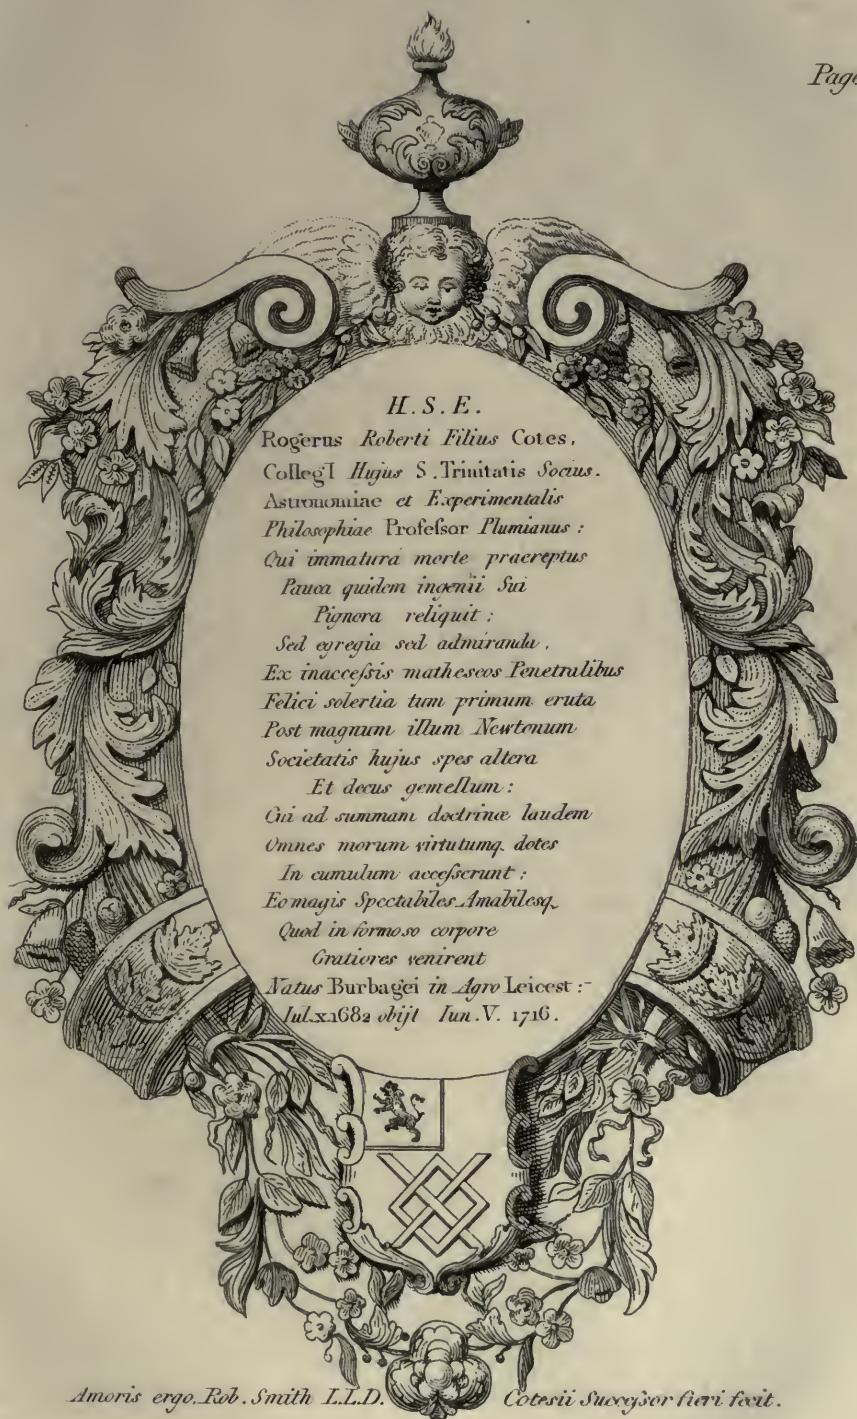 Page
H. S. E.
Rogerus Roberti Filius Cotes,
CollegI Hujus S. Trinitatis Socius.
Astronomiae et Experimentalis
Philosophiae Profeſsor Plumianus :
Qui immatura morte praereptus
Pauca quidem ingenii Sui
Pignora reliquit :
Sed egregia sed admiranda,
Ex inacceſsis matheseos Penetralibus
Felici solertia tum primum eruta
Post magnum illum Newtonum
Societatis hujus spes altera
Et decus gemellum :
Cui ad summam doctrinæ laudem
Omnes morum virtutumq. dotes
In cumulum acceſserunt :
Eo magis Spectabiles Amabilesq.
Quod in formoso corpore
Gratiores venirent
Natus Burbagei in Agro Leicest :-
Iul. x 1682 obijt Iun. V. 1716.
Amoris ergo. Rob. Smith L.L.D. Cotesii Succeſsor fieri fecit.